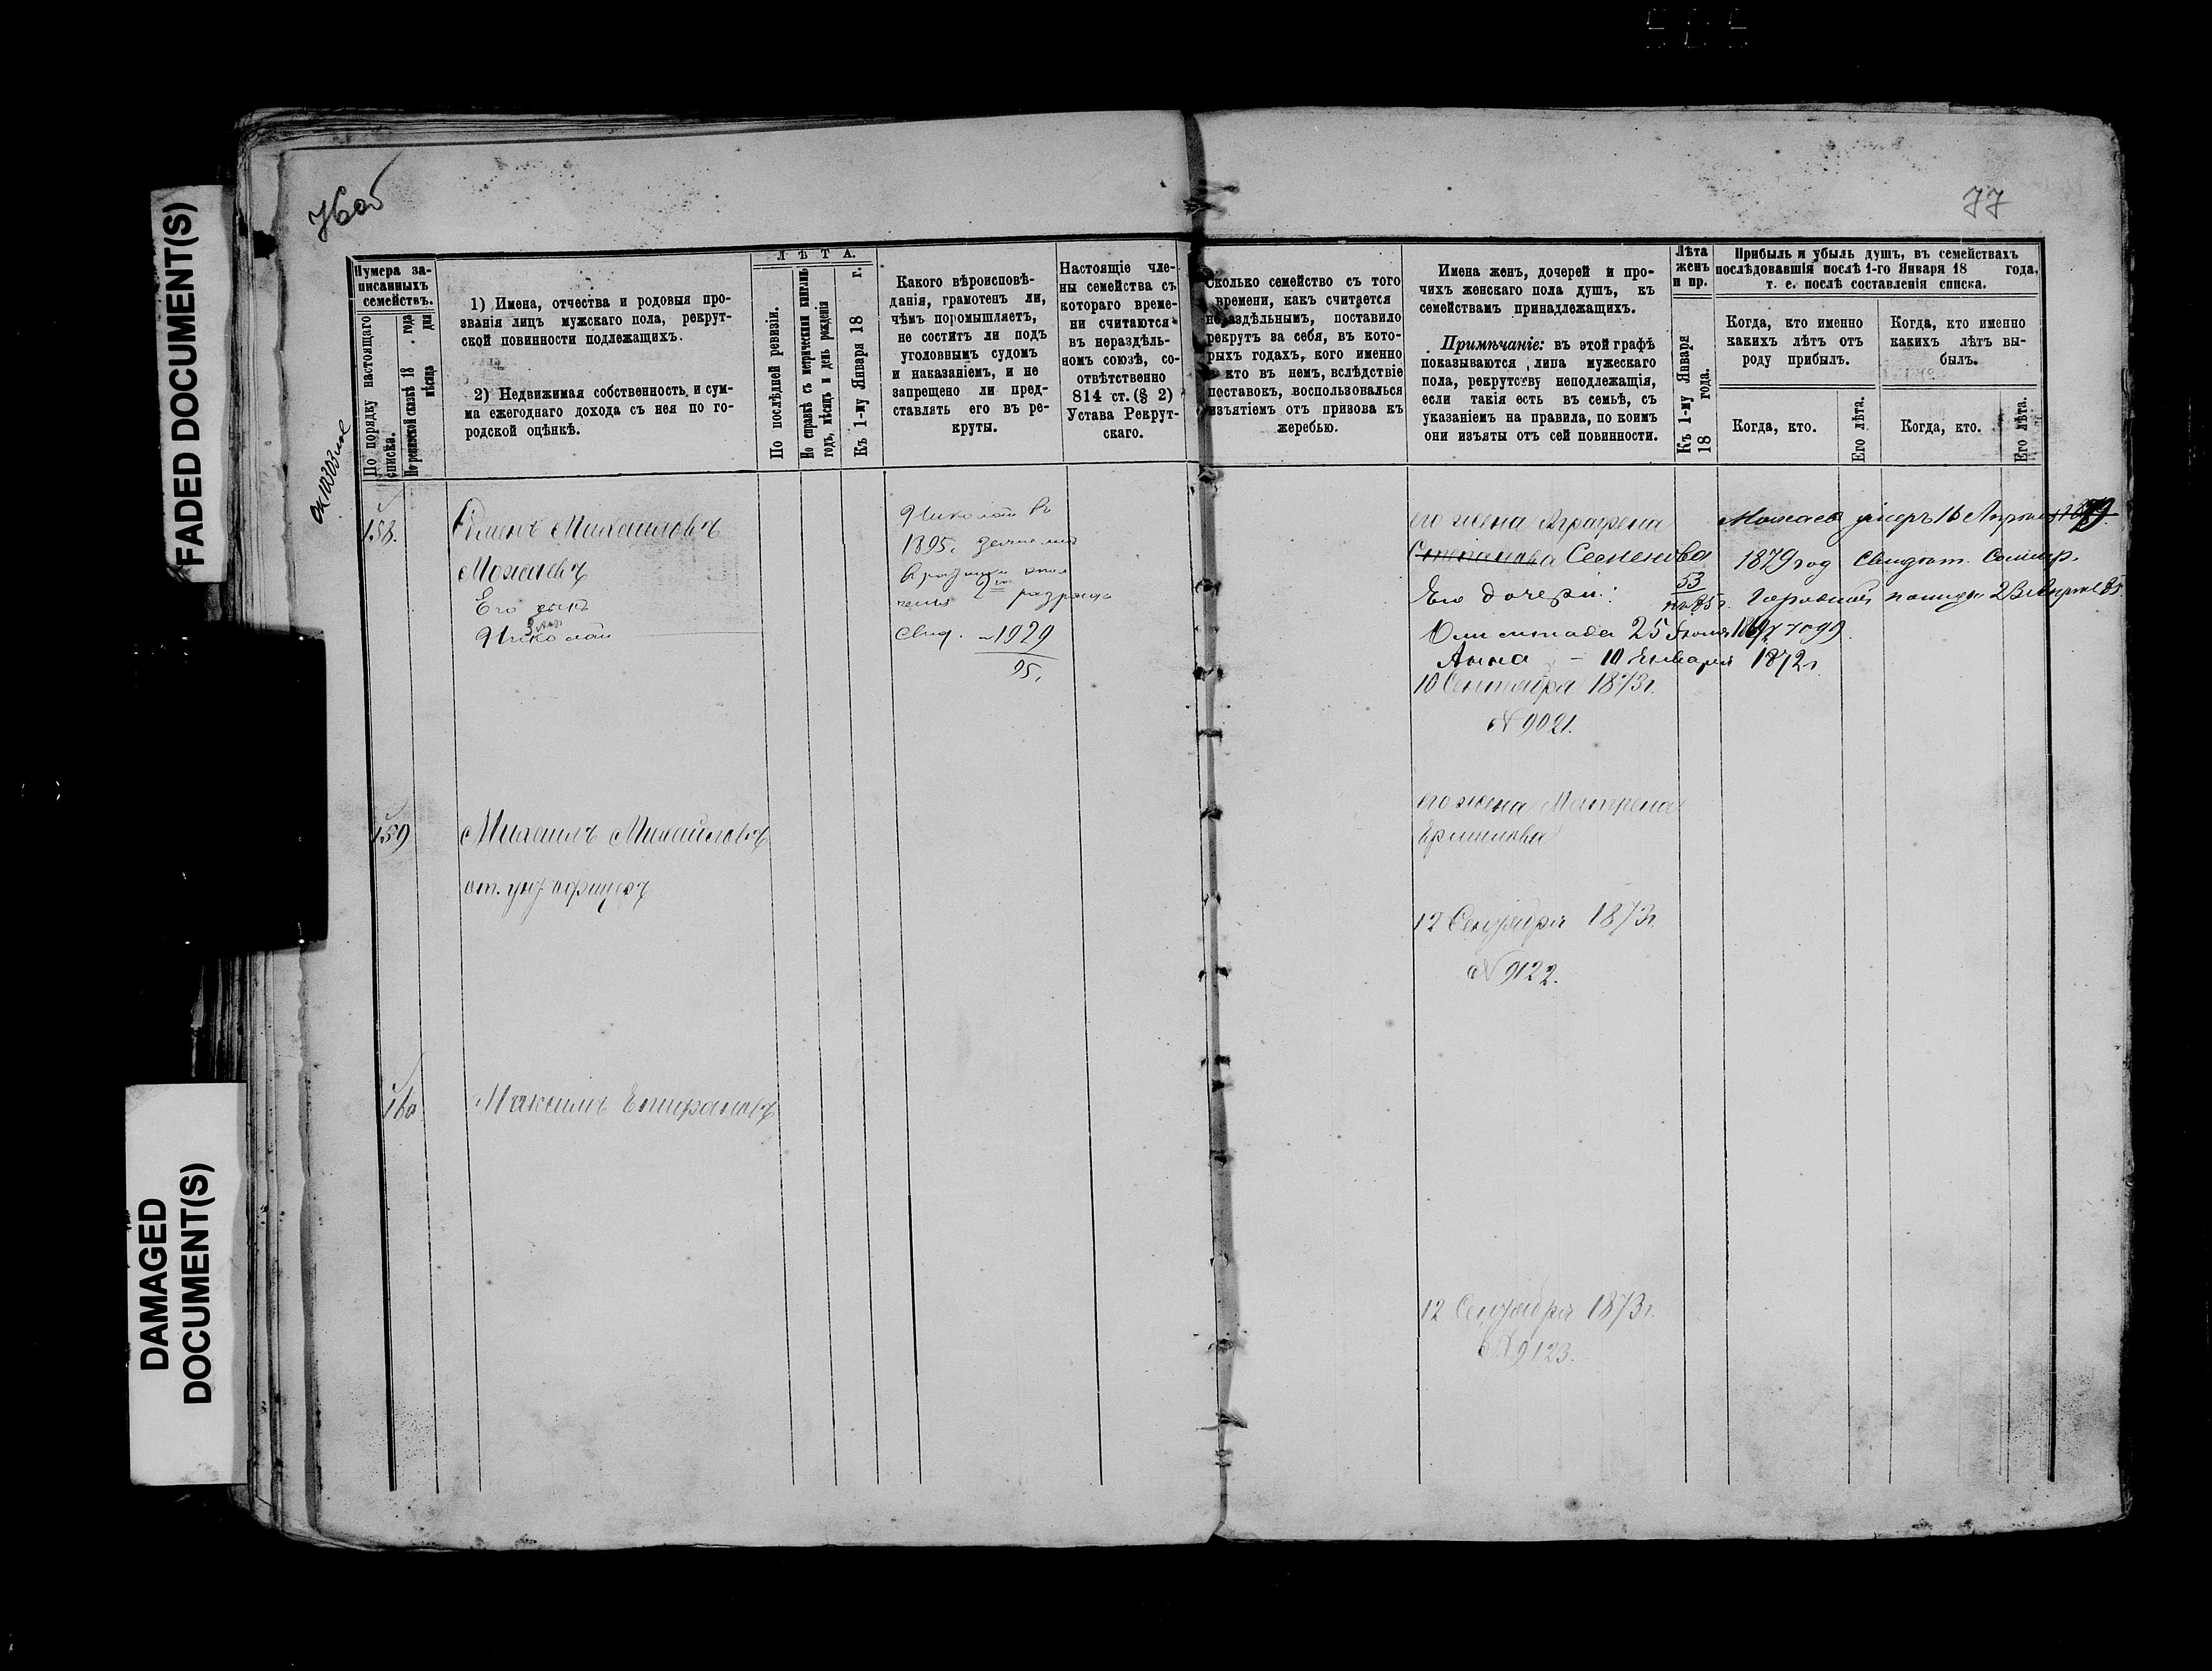 FADED DOCUMENT(S)
DAMAGED
DOCUMENT(S)
76об
77
Нумера за-
писанныхъ
семействъ.
По порядку настоящаго
списка.
По ревизской сказкѣ 18 . года
мѣсяца дня
1) Имена, отчества и родовыя про-
званія лицъ мужскаго пола, рекрут-
ской повинности подлежащихъ.
2) Недвижимая собственность и сум-
ма ежегоднаго дохода съ нея по го-
родской оцѣнкѣ.
ЛѢТА.
По послѣдней ревизіи.
По справкѣ съ метрическими книгами
годъ, мѣсяцъ и день рожденія
Къ 1-му Января 18 г.
Какого вѣроисповѣ-
данія, грамотенъ ли,
чѣмъ поромышляетъ,
не соститъ ли подъ
уголовнымъ судомъ
и наказаніемъ, и не
запрещено ли пред-
ставлять его въ ре-
круты.
Настоящіе чле-
ны семейства съ
котораго време-
ни считаются
въ нераздѣль-
номъ союзѣ, со-
отвѣтственно
814 ст. (§ 2)
Устава Рекрут-
скаго.
Сколько семейство съ того
времени, какъ считается
нераздѣльнымъ, поставило
рекрутъ за себя, въ кото-
рыхъ годахъ, кого именно
и кто въ немъ, вслѣдствіе
поставокъ, воспользовалься
изъятіемъ отъ призова къ
жеребью.
Имена женъ, дочерей и про-
чихъ женскаго пола душъ, къ
семействамъ принадлежащихъ.
Примѣчаніе: въ этой графѣ
показываются лица мужескаго
пола, рекрутству неподлежащія,
если такія есть въ семьѣ, съ
указаніемъ на правила, по коимъ
они изъяты отъ сей повинности.
Лѣта
женъ
и пр.
Къ 1-му Января
18 года.
Прибыль и убыль душъ, въ семействахъ
послѣдовавшія послѣ 1-го Января 18 года,
т. е. послѣ составленія списка.
Когда, кто именно
какихъ лѣтъ отъ
роду прибылъ.
Когда, кто именно
какихъ лѣтъ вы-
былъ.
Когда, кто.
Его лѣта.
Когда, кто.
Его лѣта.
158.
Михайловъ
Можаевъ
Его сынъ
Николай
Николай въ
1895.
2 разряда
свид. 1929
95.
его жена Аграфена
Степанова Семенова
Его дочери:
53
25 Іюня 1869 года
Анна – 10 Января 1872г
10 Сентября 1873г.
N 9021.
Можаев умеръ 16 Апреля 1879.
1879 год
159
Михаилъ Михайловъ
от. унт. офицеръ
его жена Матрена
12 Сентября 1873г.
N 9122.
160
Максимъ Епифановъ
12 Сентября 1873г.
N 9123.